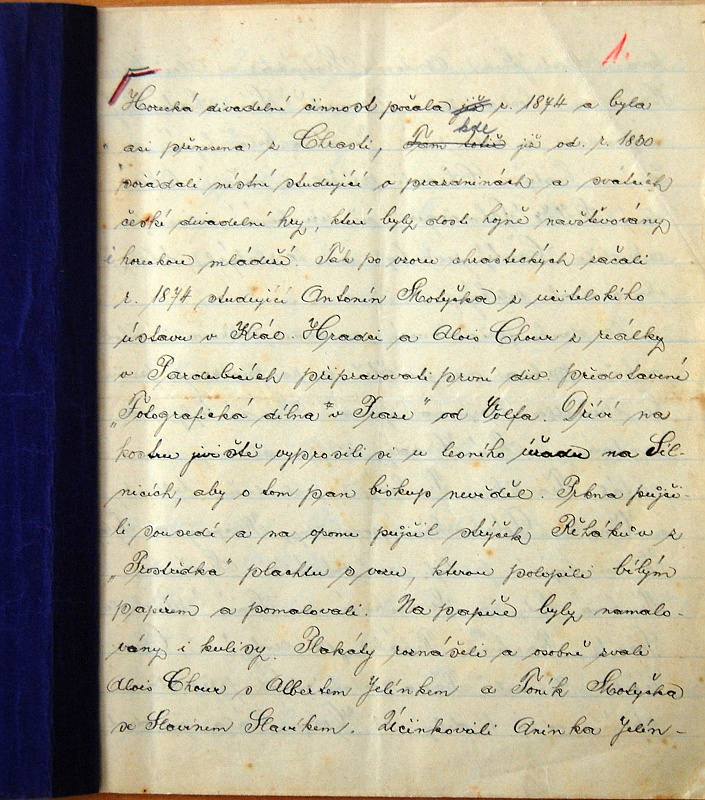 1.
Horecká divadelní činnost počala již r. 1874 a byla
kde
asi přinesena z Chrasti, Tam totiž již od r. 1830
pořádali místní studující o prázdninách a svátcích
české divadelní hry, které byly dosti hojně navštěvovány
horeckou mládeží. Tak po vzoru chrasteckých začali
r. 1874 studující Antonín Motyčka z učitelského
ústavu v Král. Hradci a Alois Chour z reálky
v Pardubicích připravovati první div. představení
„Fotografická dílna v Praze" od Volfa. Dříví na
kostru jeviště vyprosili si u lesního úřadu na Sil-
nicích, aby o tom pan biskup nevěděl. Prkna půjči-
li sousedé a na oponu půjčil strýček Řihákův z
„Prostřídka" plachtu s vozu, kterou polepili bílým
papírem a pomalovali. Na papíře byly namalo-
vány i kulisy. Plakáty roznášeli a osobně zvali
Alois Chour s Albertem Jelínkem a Toník Motyčka
se Slavínem Slavíkem. Účinkovali Aninka Jelín-